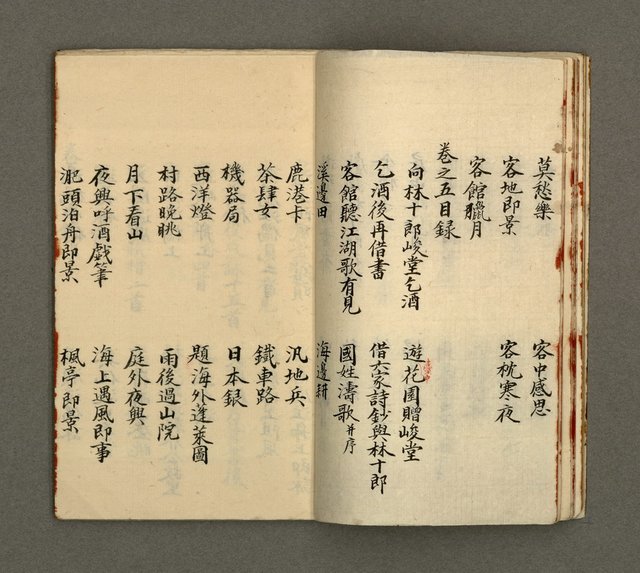 莫愁樂 客中感思
客地即景 客枕寒夜
客館臘月
卷之五目録
向林十郎峻堂乞酒 遊花園贈峻堂
乞酒後再借書 借六家詩鈔與林十郎
客館聽江湖歌有見 國姓濤歌并序
溪邊田 海邊耕
鹿港卡 汎地兵
茶肆女 鐵車路
機器局 日本銀
西洋燈 題海外蓬萊圖
村路晚眺 雨後過山院
月下看山 庭外夜興
夜興呼酒戲筆 海上遇風即事
淝頭泊舟即景 楓亭即景